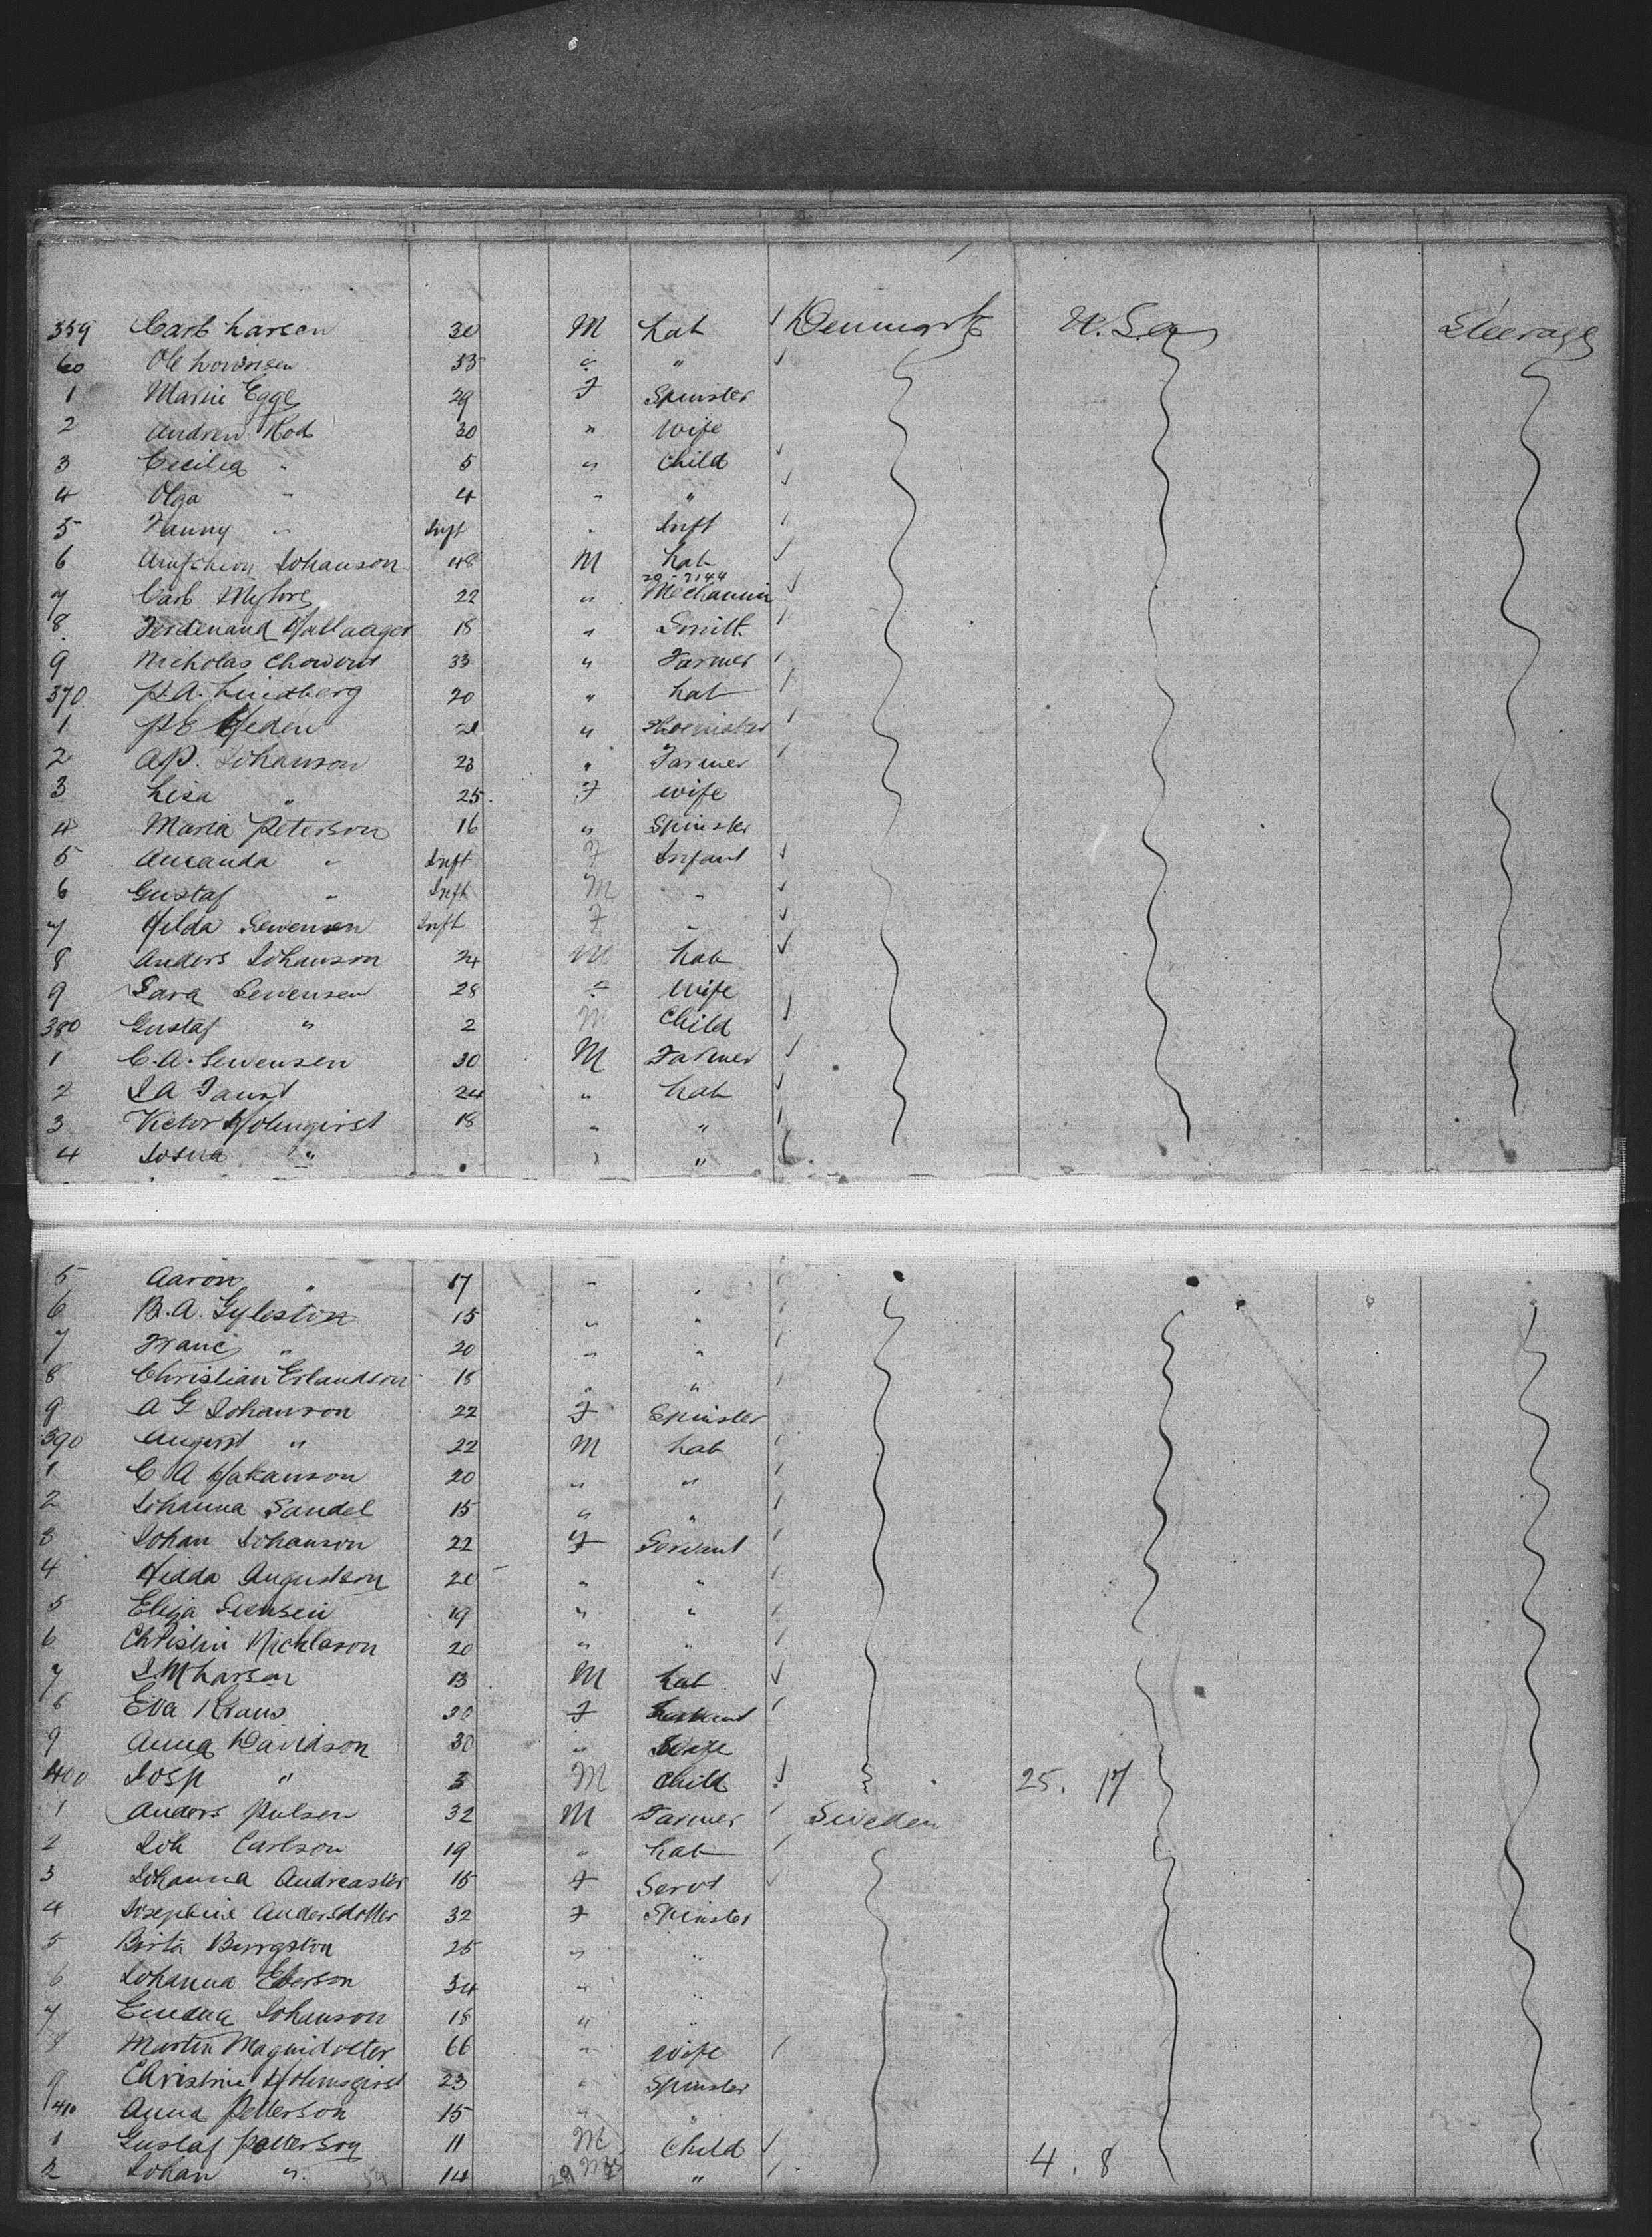 359 Carl Larsen 30 M Lab Denmark U.S.a Steerage
60 Ole 35 " "
1 Marin Egge 29 F Spinster
2 Andrew Rod 30 " Wife
3 Cecilia " 5 " Child
4 Olga " 4 " "
5 Fanny " Inft " Inft
6 Johanson 48 M Lab
29-7144
7 Carl 22 " Mechanic
8 Ferdenand 18 " Smith
9 Nicholas 33 " Farmer
370 P.A. Lindberg 20 " Lab
1 P E Heden 21 " Shoemaker
2 A.P. Johanson 23 " Farmer
3 Lisa " 25 F wife
4 Maria Peterson 16 " Spinster
5 Amanda " Inft F Infant
6 Gustaf " Inft M "
7 Hilda Sewensen Inft F "
8 Anders Johanson 24 M Lab
9 Sara Sewensen 28 F Wife
380 Gustaf " 2 M Child
1 C.A. Sewensen 30 M Farmer
2 J A Faust 24 " Lab
3 Victor Holmqirst 18 " "
4 " " "
5 Aaron " 17 " "
6 B.A. Gyleston 15 " "
7 Franc " 20 " "
8 Christian Erlandson 18 " "
9 A G Johanson 22 F Spinster
390 August " 22 M Lab
1 C A Hakanson 20 " "
2 Johanna Sandel 15 " "
3 Johan Johanson 22 F Servant
4 Hedda Augustson 20 " "
5 Eliza Svensen 19 " "
6 Christin Nicklason 20 " "
7 J.M Larsen 13 M Lab
8 Eva Kraus 30 F
9 Anna Davidson 30 " Wife
400 Josp " 3 M Child 25. 17
1 Anders Pulsen 32 M Farmer Sweden
2 Joh Carlson 19 " Lab
3 Johanna 15 F Servt
4 Josephine Andersdotter 32 F Spinster
5 Birta 25 " "
6 Johanna 34 " "
7 Johanson 18 " "
8 66 " wife
9 Christine Holmsqirst 23 " Spinster
410 Anna Petterson 15 " "
1 Gustaf Petterson 11 M Child 4. 8
2 Johan " 14 M "